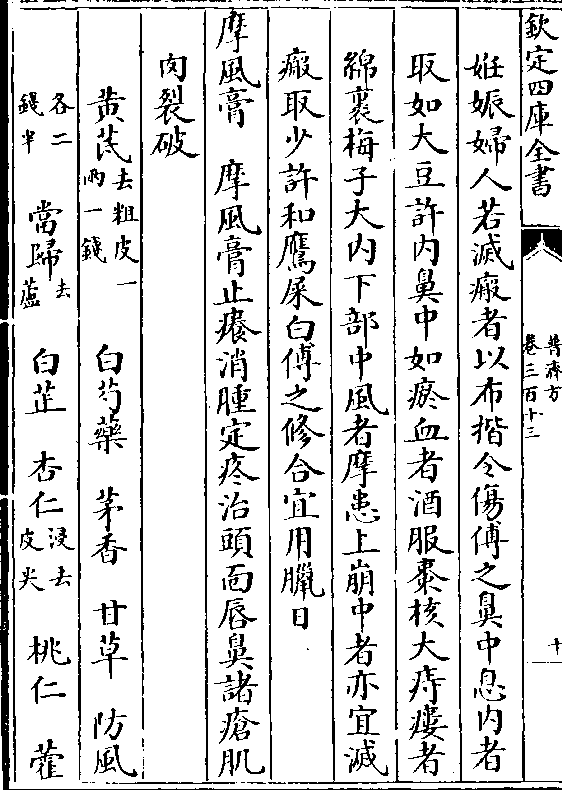 欽定四庫全書
普濟方
卷三百十三
十
姙娠婦人若滅瘢者以布揩令傷傅之鼻中息肉者
取如大豆許内鼻中如瘀血者酒服棗核大痔瘻者
綿裹梅子大内下部中風者摩患上崩中者亦宜滅
瘢取少許和鷹屎白傅之修合宜用臘日
摩風膏　摩風膏止癢消腫定疼治頭面唇鼻諸瘡肌
肉裂破
黄芪去粗皮一兩一錢　白芍藥　茅香　甘草　防風
各二錢半　當歸去蘆　白芷　杏仁浸去皮尖　桃仁　藿